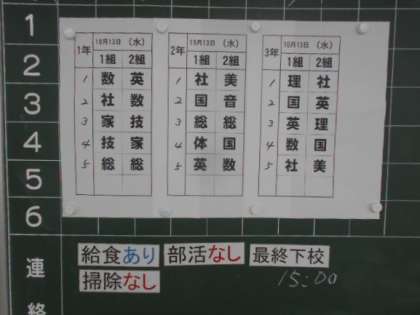 1
2
3
4
5
6
連
絡
1年 10月13日 (水)
1組 2組
1 数 英
2 社 数
3 家 技
4 技 家
5 総 総
2年 10月13日 (水)
1組 2組
1 社 美
2 国 音
3 総 総
4 体 国
5 英 数
3年 10月13日 (水)
1組 2組
1 理 社
2 国 英
3 英 理
4 数 国
5 社 美
給食あり 部活なし 最終下校
掃除なし 15:00